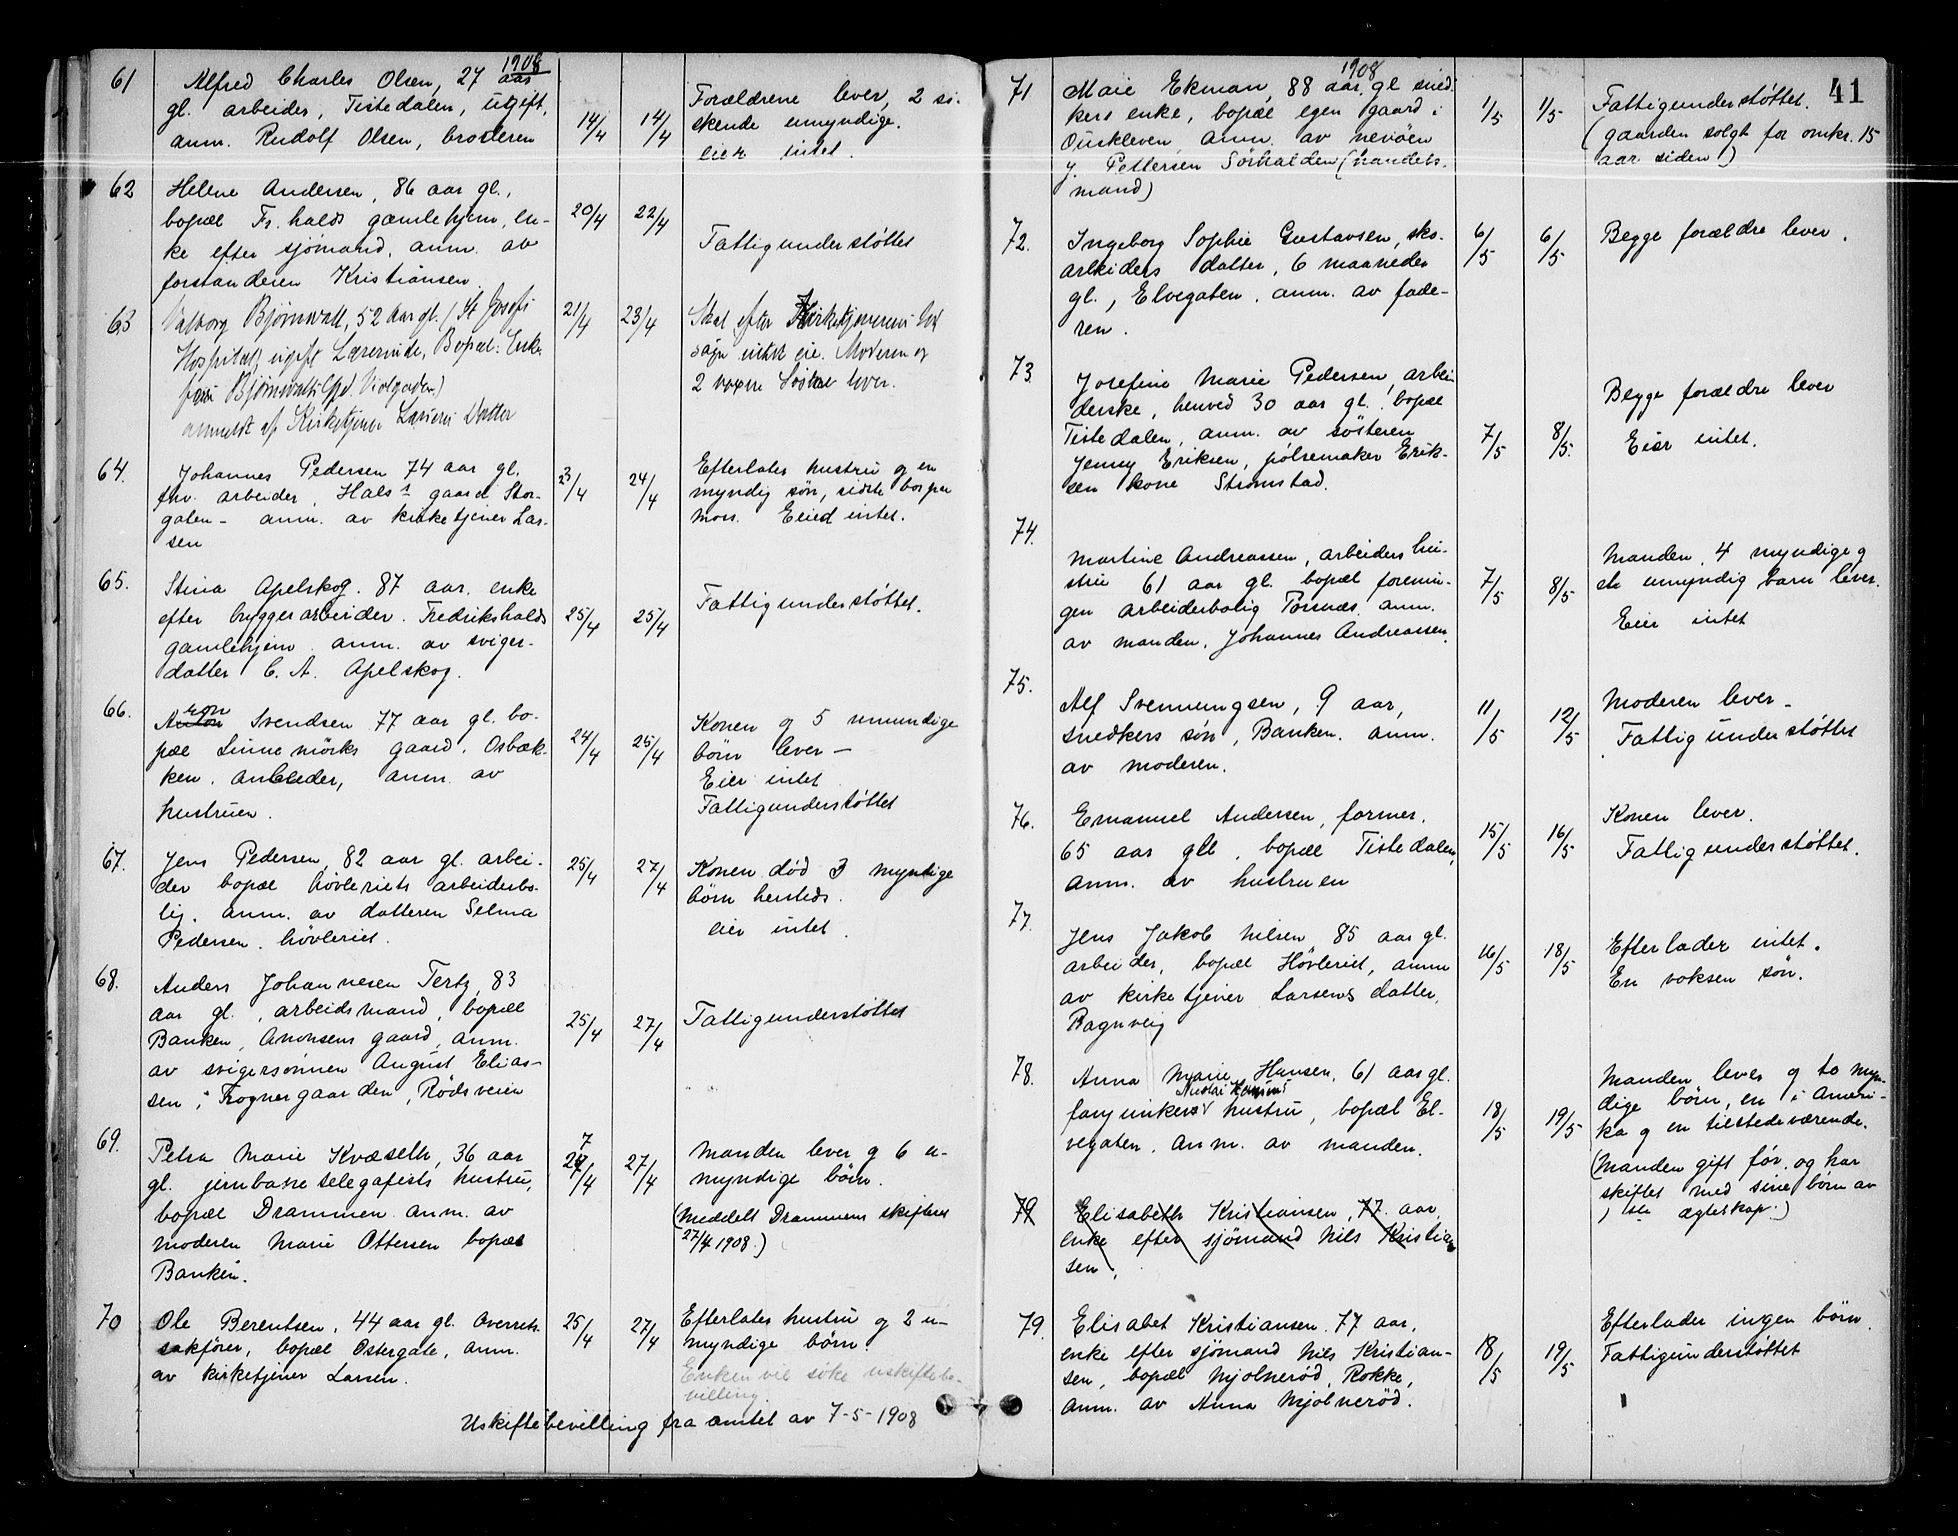 1908
61 Alfred Charles Olsen, 27 aar
gl. arbeider, Tistedalen, ugift,
anm. Rudolf Olsen, broderen
14/4 14/4
Forældrene lever, 2 sø-
skende umyndige.
eier intet.
62 Helene Andersen, 86 aar gl.,
bopæl Fr.halds gamlehjem, en-
ke efter sjömand, anm. av
forstanderen Kristiansen
20/4 22/4
Fattigunderstøttet
63 Valborg Bjørnwall, 52 aar gl. (St Josefs
Hospital) ugift Lærerinde, Bopæl: Enke
fru Bjørnwalls Gd. Violgaden)
anmeldt af Kirketjener Larsens Datter
21/4 23/4
Skal efter Kirketjenerens Ud
sagn intet eie. Moderen og
2 voxne Søskende lever.
64. Johannes Pedersen 74 aar gl.
fhv. arbeider, Hals's gaard Stor-
gaten - anm. av kirketjener Lar-
sen
23/4 24/4
Efterlater hustru og en
myndig sön, sidste bor paa
Moss. Eied intet.
65. Stina Apelskog. 87 aar. enke
efter bryggeriarbeider. Fredrikshalds
gamlehjem anm. av sviger-
datter C. A. Apelskog.
25/4 25/4
Fattigunderstøttet.
66. Anton Svendsen 77 aar gl. bo-
pæl Linnemörks gaard, Osbæk-
ken. arbeider, anm. av
hustruen.
24/4 25/4
Konen og 5 umundige
börn lever —
Eier intet
Fattigunderstöttet
67. Jens Pedersen, 82 aar gl. arbei-
der bopæl hövleriets arbeiderbo-
lig. anm. av datteren Selma
Pedersen. hövleriet.
25/4 27/4
Konen død 3 myndige
børn hersteds.
eier intet.
68. Anders Johannesen Tertz, 83
aar gl., arbeidsmand, bopæl
Banken, Anonsens gaard, anm.
av svigersönnen August Elias-
sen, i Frognergaarden, Rödsveien
25/4 27/4
Fattigunderstöttet
69. Petra Marie Kvæseth, 36 aar
gl. jernbanetelegrafists hustru,
bopæl Drammen anm. av
moderen Marie Ottersen bopæl
Banken.
27/4 27/4
Manden lever og 6 u-
myndige børn.
(Meddelt Drammens skifteret
27/4 1908.)
70 Ole Berentsen, 44 aar gl. Overrets
sakförer, bopæl Ostergate, anm.
av kirketjener Larsen.
25/4 27/4
Efterlater hustru og 2 u-
myndige børn.
Enken vil söke uskiftebe-
villing.
Uskiftebevilling fra amtet av 7-5-1908
1908
41
71 Maie Ekman, 88 aar gl sned
kers enke, bopæl egen gaard i
Ouskleven, anm. av nevöen
J. Pettersen Sörhalden (handels.
mand)
1/5 1/5
Fattigunderstøttet.
(gaarden solgt for omkr. 15
aar siden)
72. Ingeborg Sophie Gustavsen, sko-
arbeiders datter, 6 maaneder
gl., Elvegaten. anm. av fade-
ren.
6/5 6/5
Begge forældre lever.
73. Josefine Marie Pedersen, arbei
derske, henved 30 aar gl. bopæl
Tistedalen, anm. av söstern
Jenny Eriksen, pölsemaker Erik-
sen kone Strömstad.
7/5 8/5.
Begge forældre lever
Eier intet.
74. Martine Andreassen, arbeiders hu-
stru 61 aar gl. bopæl forenin-
gen arbeiderbolig Torsnæs anm.
av manden, Johannes Andreassen.
7/5 8/5
Manden, 4 myndige og
et umyndig barn lever.
Eier intet
75. Alf Svenningsen, 9 aar,
snedkers sön, Banken. anm.
av moderen.
11/5 12/5
Moderen lever -
Fattigunderstöttet
76. Emanuel Andersen, former,
65 aar gl., bopæl Tistedalen,
anm. av hustruen
15/5 16/5
Konen lever.
Fattigunderstøttet.
77. Jens Jakob Nilsen 85 aar gl.
arbeider, bopæl Hövleriet, anm
av kirketjener Larsens datter,
Ragnveig
16/5 18/5
Efterlader intet.
En voksen sön.
78. Anna Marie Hansen, 61 aar gl.
Nicolai Hansens
hustru, bopæl El-
vegaten, anm. av manden.
18/5 19/5
Manden lever og to myn-
dige børn, en i Ameri-
ka og en tilstedeværende.
(Manden gift før, og har
skiftet med sine børn av
1ste ægteskap.)
79 Elisabeth Kristiansen, 77 aar,
enke efter sjömand Nils Kristian
sen,
79. Elisabet Kristiansen. 77 aar,
enke efter sjömand Nils Kristian-
sen, bopæl Mjölnerød, Rokke,
anm. av Anna Mjölnerød.
18/5 19/5
Efterlader ingen børn
Fattigunderstøttet